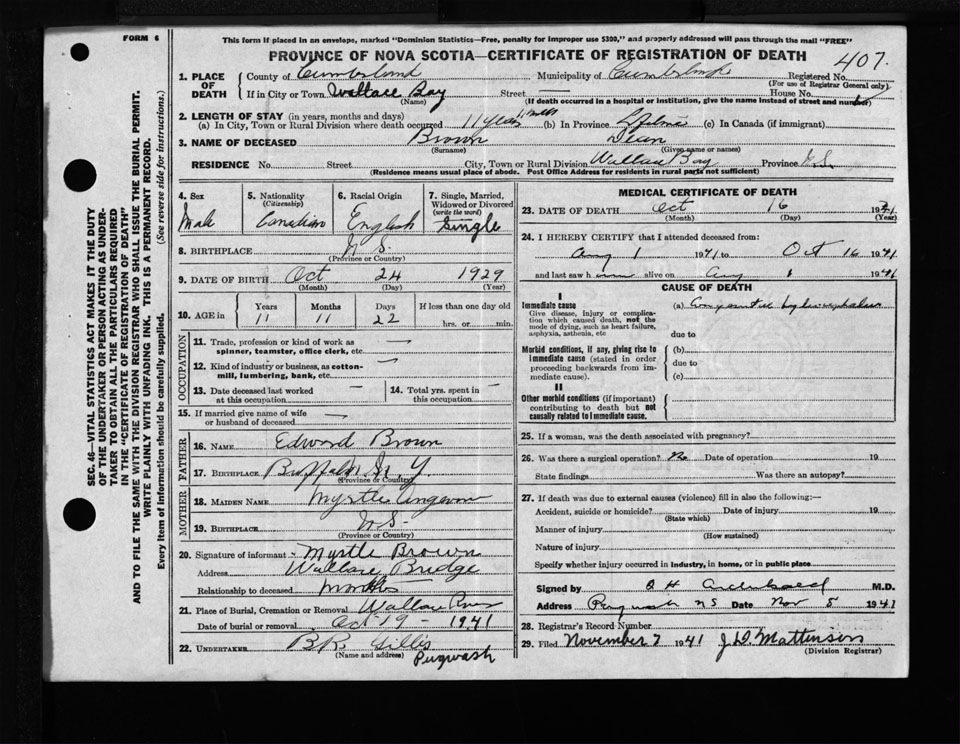 FORM 6
This form if placed in an envelope, marked "Dominion Statistics—Free, penalty for improper use $300," and properly addressed will pass through the mail "FREE"
PROVINCE OF NOVA SCOTIA—CERTIFICATE OF REGISTRATION OF DEATH
407.
1. PLACE OF DEATH
County of Cumberland Municipality of Cumberland Registered No.
(For use of Registrar General only)
If in City or Town Wallace Bay Street — House No.
(Name) (If death occurred in a hospital or institution, give the name instead of street and number)
2. LENGTH OF STAY (in years, months and days)
(a) In City, Town or Rural Division where death occurred 11 years (b) In Province (c) In Canada (if immigrant)
3. NAME OF DECEASED Brown Dean
(Surname) (Given name or names)
RESIDENCE No. Street City, Town or Rural Division Wallace Bay Province N.S.
(Residence means usual place of abode. Post Office Address for residents in rural parts not sufficient)
4. Sex Male
5. Nationality (Citizenship) Canadian
6. Racial Origin English
7. Single, Married, Widowed or Divorced (write the word) Single
8. BIRTHPLACE N.S.
(Province or Country)
9. DATE OF BIRTH Oct 24 1929
(Month) (Day) (Year)
10. AGE in Years Months Days If less than one day old
11 11 22 hrs. or min.
OCCUPATION
11. Trade, profession or kind of work as spinner, teamster, office clerk, etc. —
12. Kind of industry or business, as cotton-mill, lumbering, bank, etc. —
13. Date deceased last worked at this occupation —
14. Total yrs. spent in this occupation —
15. If married give name of wife or husband of deceased —
FATHER
16. NAME Edward Brown
17. BIRTHPLACE Buffalo N.Y.
(Province or Country)
MOTHER
18. MAIDEN NAME Myrtle
19. BIRTHPLACE N.S.
(Province or Country)
20. Signature of informant Myrtle Brown
Address Wallace Bridge
Relationship to deceased
21. Place of Burial, Cremation or Removal Wallace
Date of burial or removal Oct 19 - 1941
22. UNDERTAKER BR Gillis
(Name and address) Pugwash
MEDICAL CERTIFICATE OF DEATH
23. DATE OF DEATH Oct 16 1941
(Month) (Day) (Year)
24. I HEREBY CERTIFY that I attended deceased from:
Aug 1 1941 to Oct 16 1941
and last saw him alive on Aug 1 1941
CAUSE OF DEATH
I
Immediate cause
Give disease, injury or complication which caused death, not the mode of dying, such as heart failure, asphyxia, asthenia, etc
(a)
due to
Morbid conditions, if any, giving rise to immediate cause (stated in order proceeding backwards from immediate cause).
(b)
due to
(c)
II
Other morbid conditions (if important) contributing to death but not causally related to Immediate cause.
25. If a woman, was the death associated with pregnancy?
26. Was there a surgical operation? No Date of operation 19
State findings Was there an autopsy?
27. If death was due to external causes (violence) fill in also the following:—
Accident, suicide or homicide? Date of injury 19
(State which)
Manner of injury
(How sustained)
Nature of injury
Specify whether injury occurred in industry, in home, or in public place
Signed by M.D.
Address Pugwash NS Date Nov 5 1941
28. Registrar's Record Number
29. Filed November 7 1941 J. D. Mattinson
(Division Registrar)
SEC. 46—VITAL STATISTICS ACT MAKES IT THE DUTY
OF THE UNDERTAKER OR PERSON ACTING AS UNDER-
TAKER TO OBTAIN ALL THE PARTICULARS REQUIRED
IN THE "CERTIFICATE OF REGISTRATION OF DEATH"
AND TO FILE THE SAME WITH THE DIVISION REGISTRAR WHO SHALL ISSUE THE BURIAL PERMIT.
WRITE PLAINLY WITH UNFADING INK. THIS IS A PERMANENT RECORD.
Every item of information should be carefully supplied. (See reverse side for instructions.)